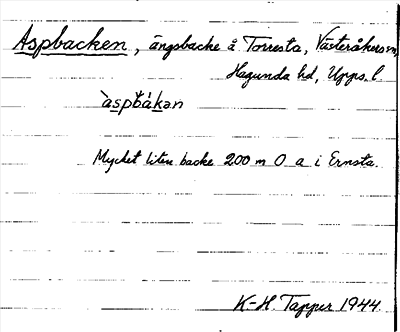 Aspbacken, ängsbacke å Torresta, Västeråkers sn,
Hagunda hd, Upps. l.
`aspbàkən
Mycket liten backe 200 m O a i Ernsta.
K-H. Tapper 1944.